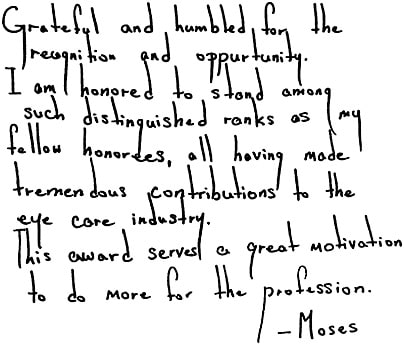 Grateful and humbled for the
recognition and oppurtunity.
I am honored to stand among
such distinguished ranks as my
fellow honordes, all having made
tremendous contributions to the
eye care industry.
This award serves a great motivation
to do more for the profession.
- Moses